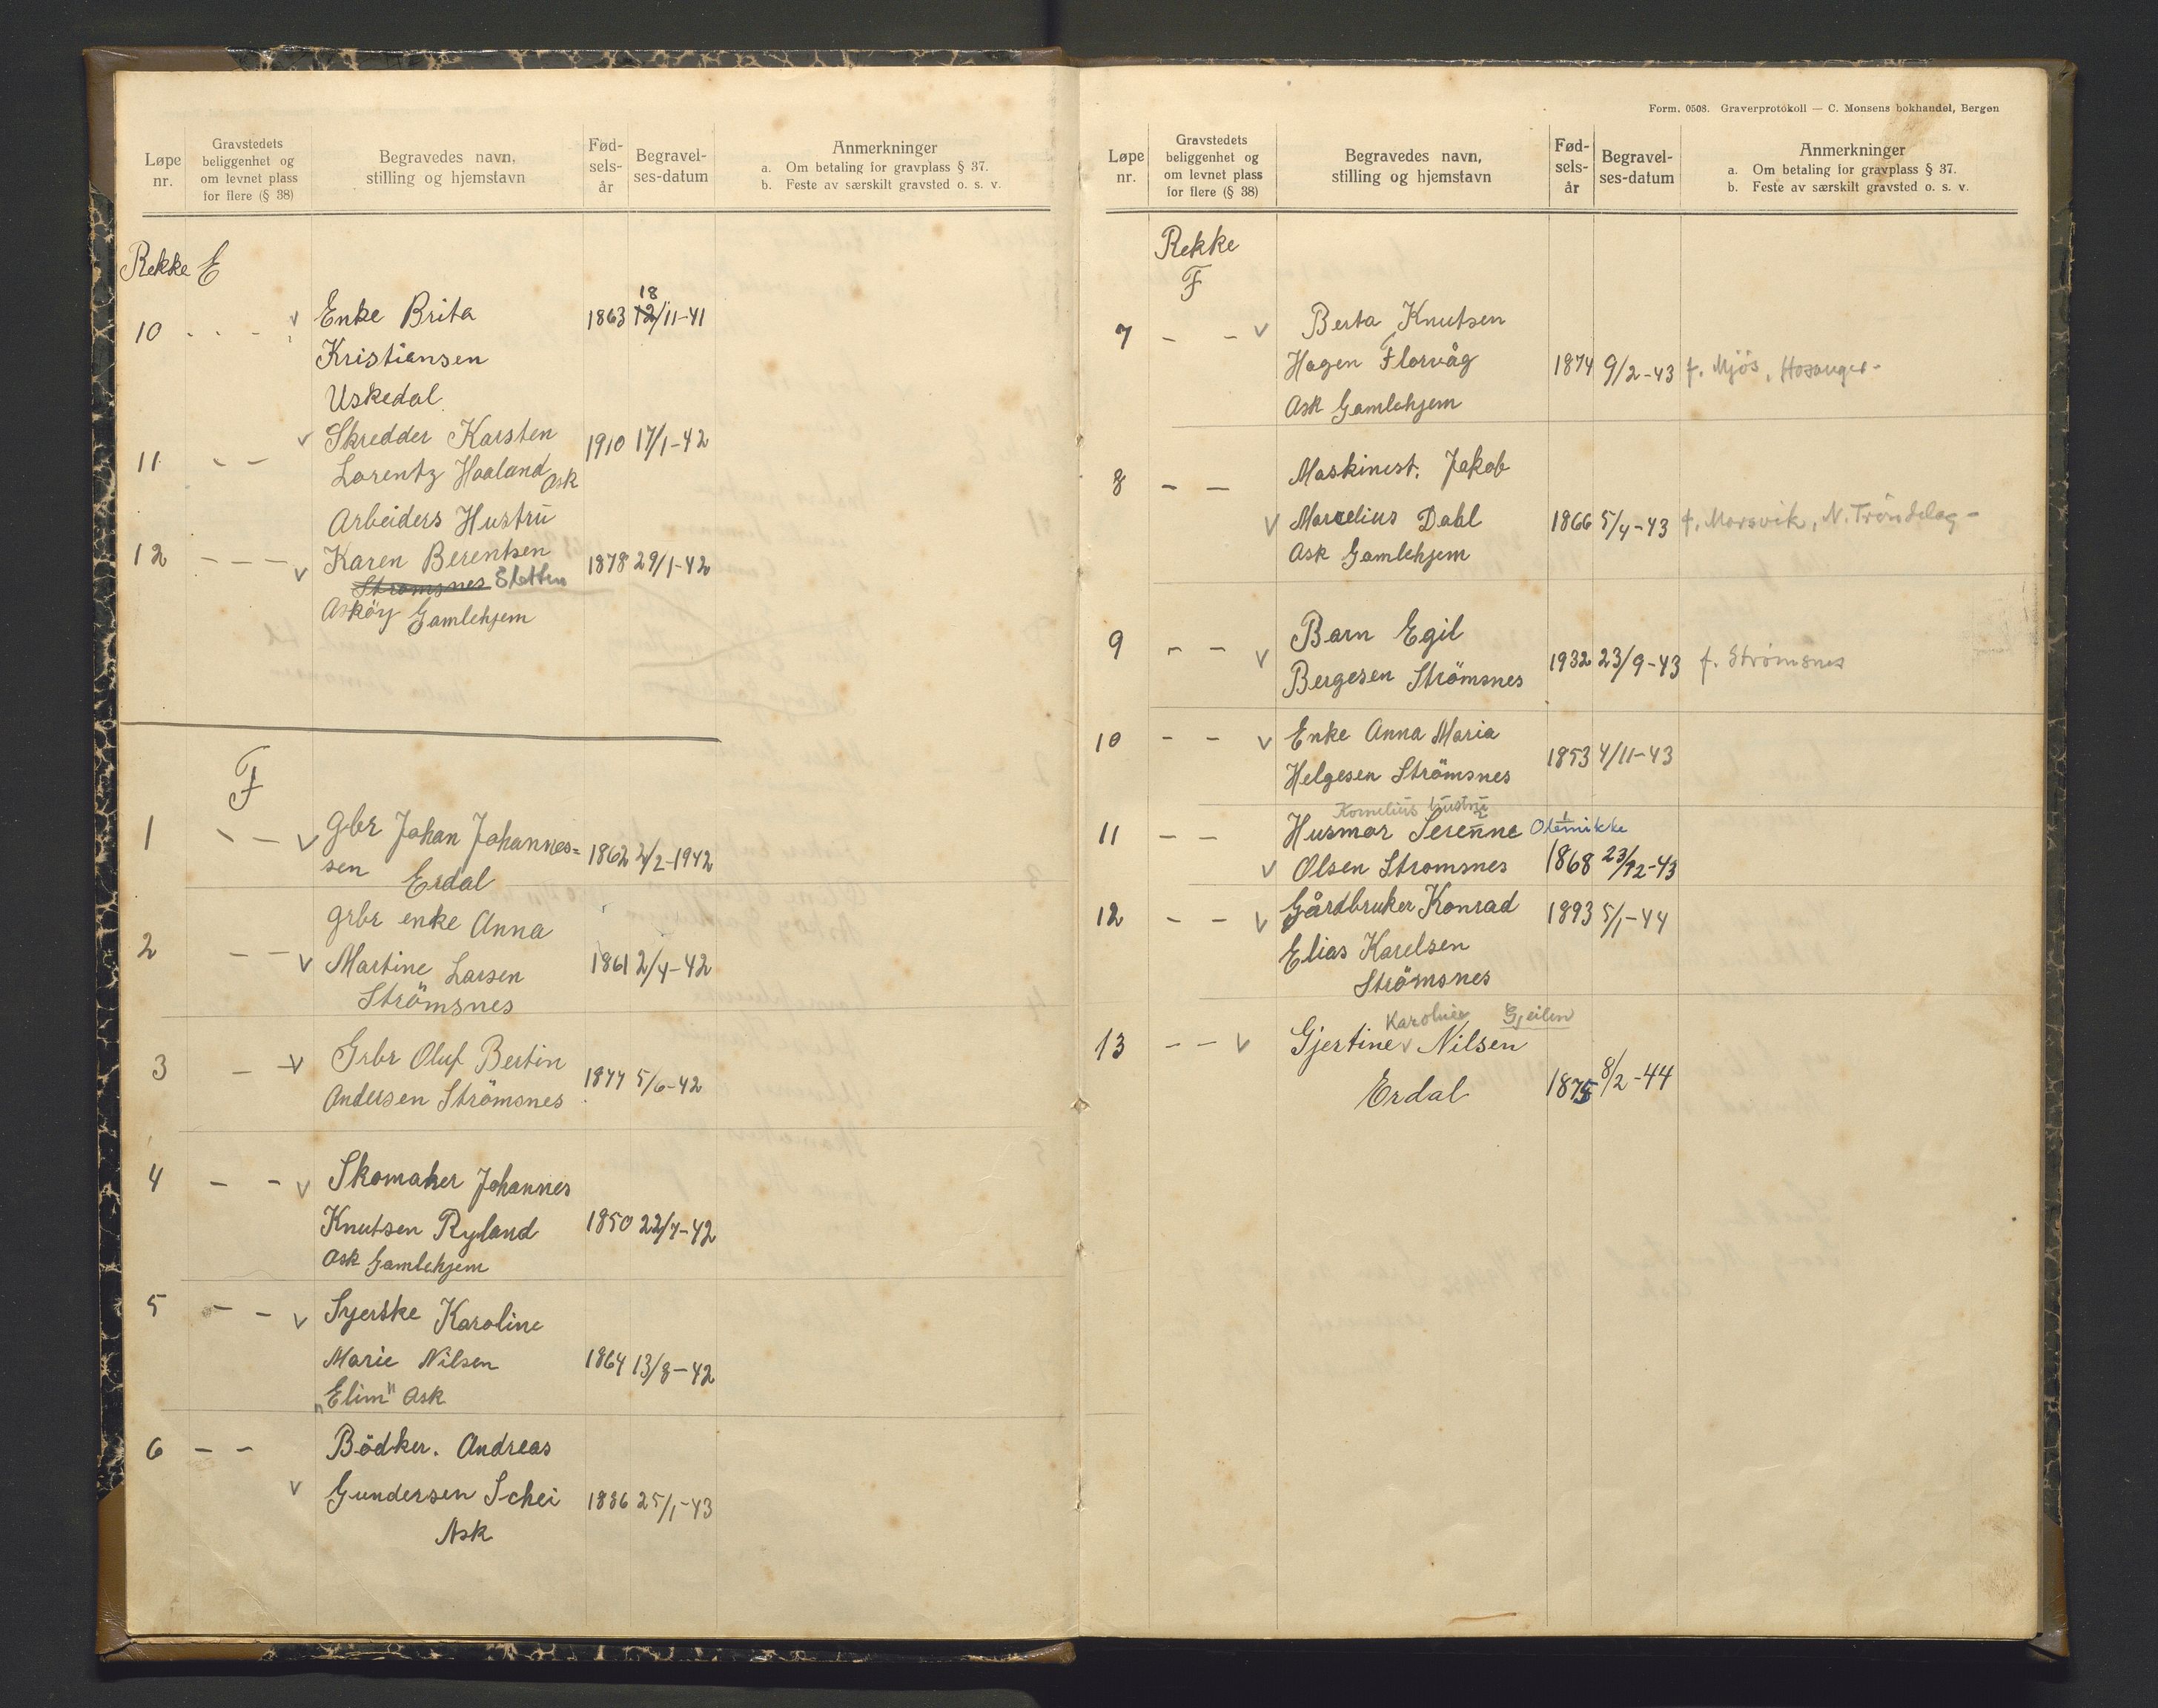 Løpe nr.
Gravstedets beliggenhet og om levnet plass for flere (§ 38)
Begravedes navn, stilling og hjemstavn
Fød-sels-år
Begravel-ses-datum
Anmerkninger
a. Om betaling for gravplass § 37.
b. Feste av særskilt gravsted o. s. v.
Rekke E
18
10 - - - v Enke Brita 1863 12/11-41
Kristiansen
Uskedal
v Skredder Karsten 1910 17/1-42
11 - - Lorentz Haaland Ask
Arbeiders Hustru
12 - - - v Karen Berentsen 1878 29/1-42
Strømsnes Sletten
Asköy Gamlehjem
F
1 - - v gbr Johan Johannes= 1862 2/2-1942
sen Erdal
grbr enke Anna
2 - - v Martine Larsen 1861 2/4-42
Strömsnes
3 - - v Grbr Oluf Bertin 1877 5/6-42
Andersen Strömsnes
4 - - v Skomaker Johannes
Knutsen Ryland 1850 22/7-42
Ask Gamlehjem
5 - - v Syerske Karoline
Marie Nilsen 1864 13/8-42
„Elim" Ask
6 - - Bödker. Andreas
v Gundersen Schei 1886 25/1-43
Ask
Form. 0508. Graverprotokoll — C. Monsens bokhandel, Bergen
Løpe nr.
Gravstedets beliggenhet og om levnet plass for flere (§ 38)
Begravedes navn, stilling og hjemstavn
Fød-sels-år
Begravel-ses-datum
Anmerkninger
a. Om betaling for gravplass § 37.
b. Feste av særskilt gravsted o. s. v.
Rekke
F
7 - - v Berta Knutsen
Hagen Florvåg 1874 9/2-43 f. Mjös, Hosanger-
Ask Gamlehjem
8 - - Maskinist. Jakob
v Marcelius Dahl 1866 5/4-43 f. Morsvik, N. Tröndelag-
Ask Gamlehjem
9 - - v Barn Egil
Bergesen Strömsnes 1932 23/9-43 f. Strömsnes
10 - - v Enke Anna Maria
Helgesen Strömsnes 1853 4/11-43
Kornelius hustru
11 - - Husmor Serenne Olemikke
v Olsen Stromsnes 1868 23/12-43
12 - - v Gårdbruker Konrad 1893 5/1-44
Elias Karelsen
Strömsnes
Karoline Gjeilen
13 - - v Gjertine v Nilsen
Erdal 1875 8/2-44